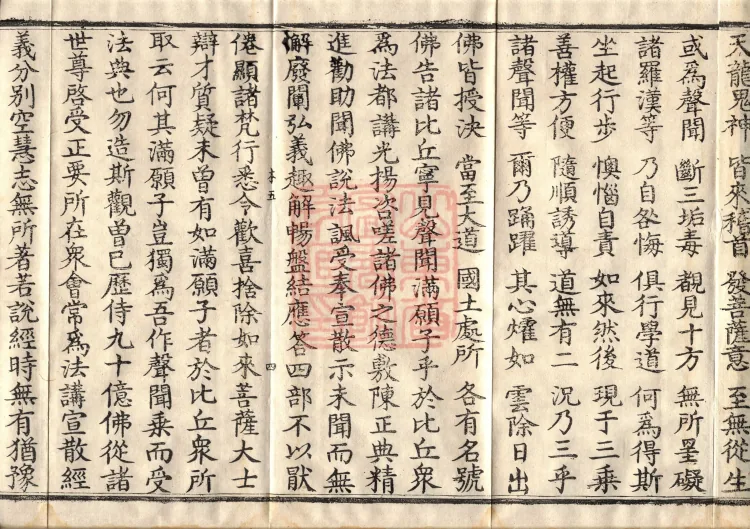 天龍鬼神 皆來稽首 發菩薩意 至無從生
或爲聲聞 斷三垢毒 覩見十方 無所罣礙
諸羅漢等 乃自咎悔 俱行學道 何爲得斯
坐起行步 懊惱自責 如來然後 現于三乘
善權方便 隨順誘導 道無有二 況乃三乎
諸聲聞等 爾乃踊躍 其心燿如 雲除日出
佛皆授決 當至大道 國土處所 各有名號
佛告諸比丘寧見聲聞滿願子乎於比丘衆
爲法都講光揚咨嗟諸佛之德敷陳正典精
進勸助聞佛說法諷受奉宣散示未聞而無
懈廢闡弘義趣解暢盤結應答四部不以猒
林五 四
倦顯諸梵行悉令歡喜捨除如來菩薩大士
辯才質疑未曾有如滿願子者於比丘衆所
取云何其滿願子豈獨爲吾作聲聞乘而受
法典也勿造斯觀曾已歷侍九十億佛從諸
世尊啓受正要所在衆會常爲法講宣散經
義分別空慧志無所著若說經時無有猶豫